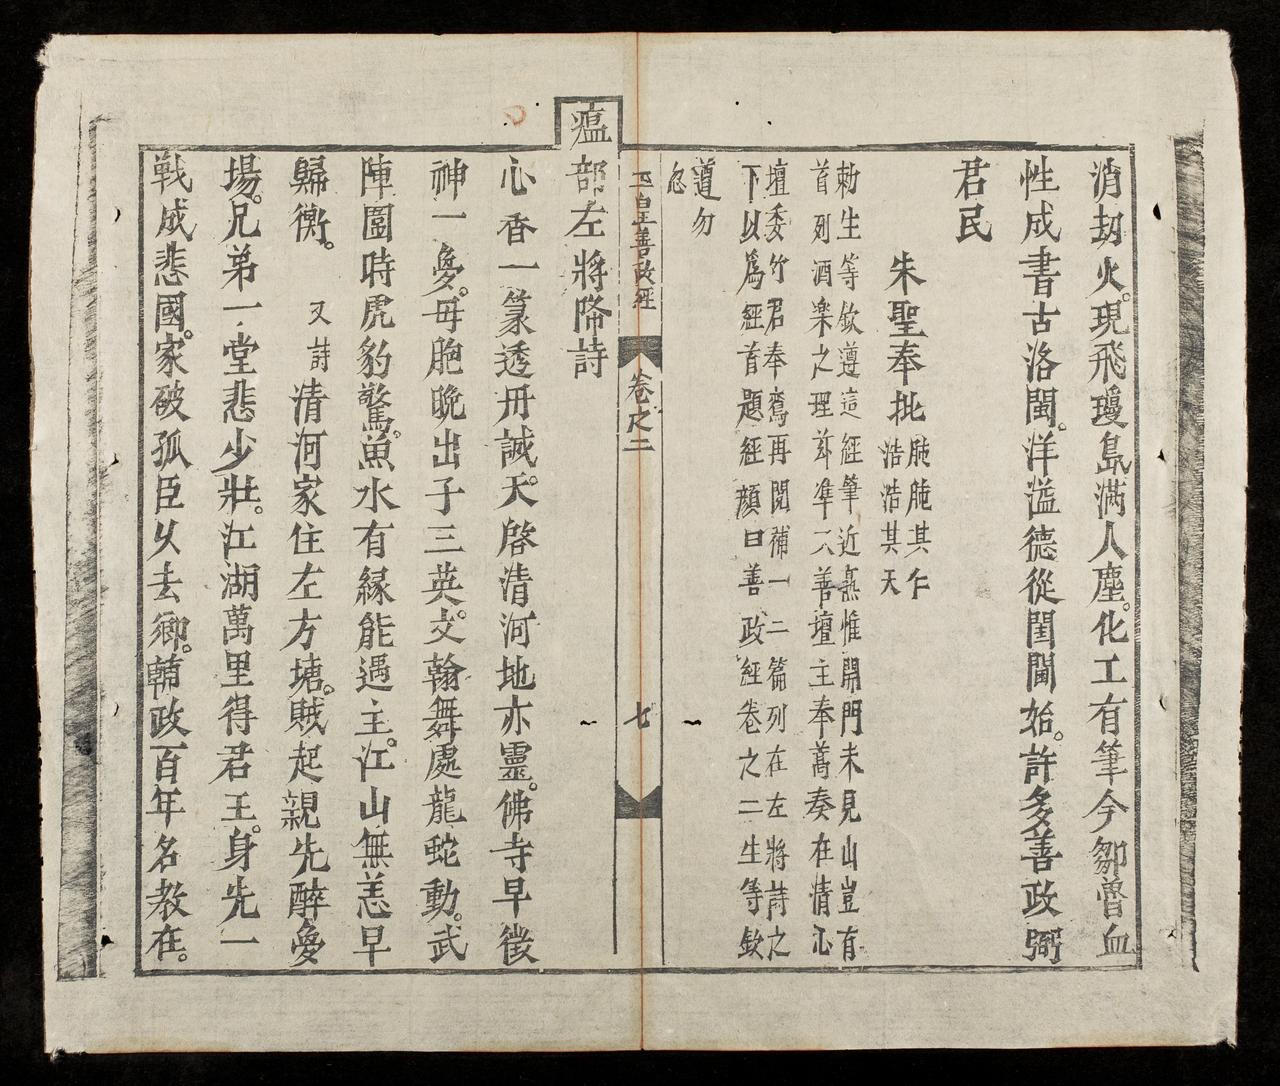 消刼火。現飛瓊島滿人塵。化工有筆今鄒魯血
性成書古洛閩。洋溢德從閨閫始。許多善政弼
君民
朱聖奉批
肫肫其仁
浩浩其天
勅生等欽遵這經筆近熹惟開門未見山豈有
首列酒樂之理茲準入善壇主奉蒿奏在情沁
壇委竹君奉鸞再閱補一二篇列在左將詩之
下以為經首題經顏曰善政經卷之二生等欽
遵勿
忽
玉皇善政經
卷之二
七
瘟部左將降詩
心香一篆透丹誠。天啓清河地亦靈。佛寺早徵
神一夢。母胞晚出子三英。文翰舞處龍蛇動。武
陣圖時虎豹驚。魚水有緣能遇主。江山無恙早
歸衡。
又詩
清河家住左方塘。賊起親先醉夢
場。兄弟一堂悲少壯。江湖萬里得君王。身先一
戰成悲國。家破孤臣乆去鄉。輔政百年名教在。